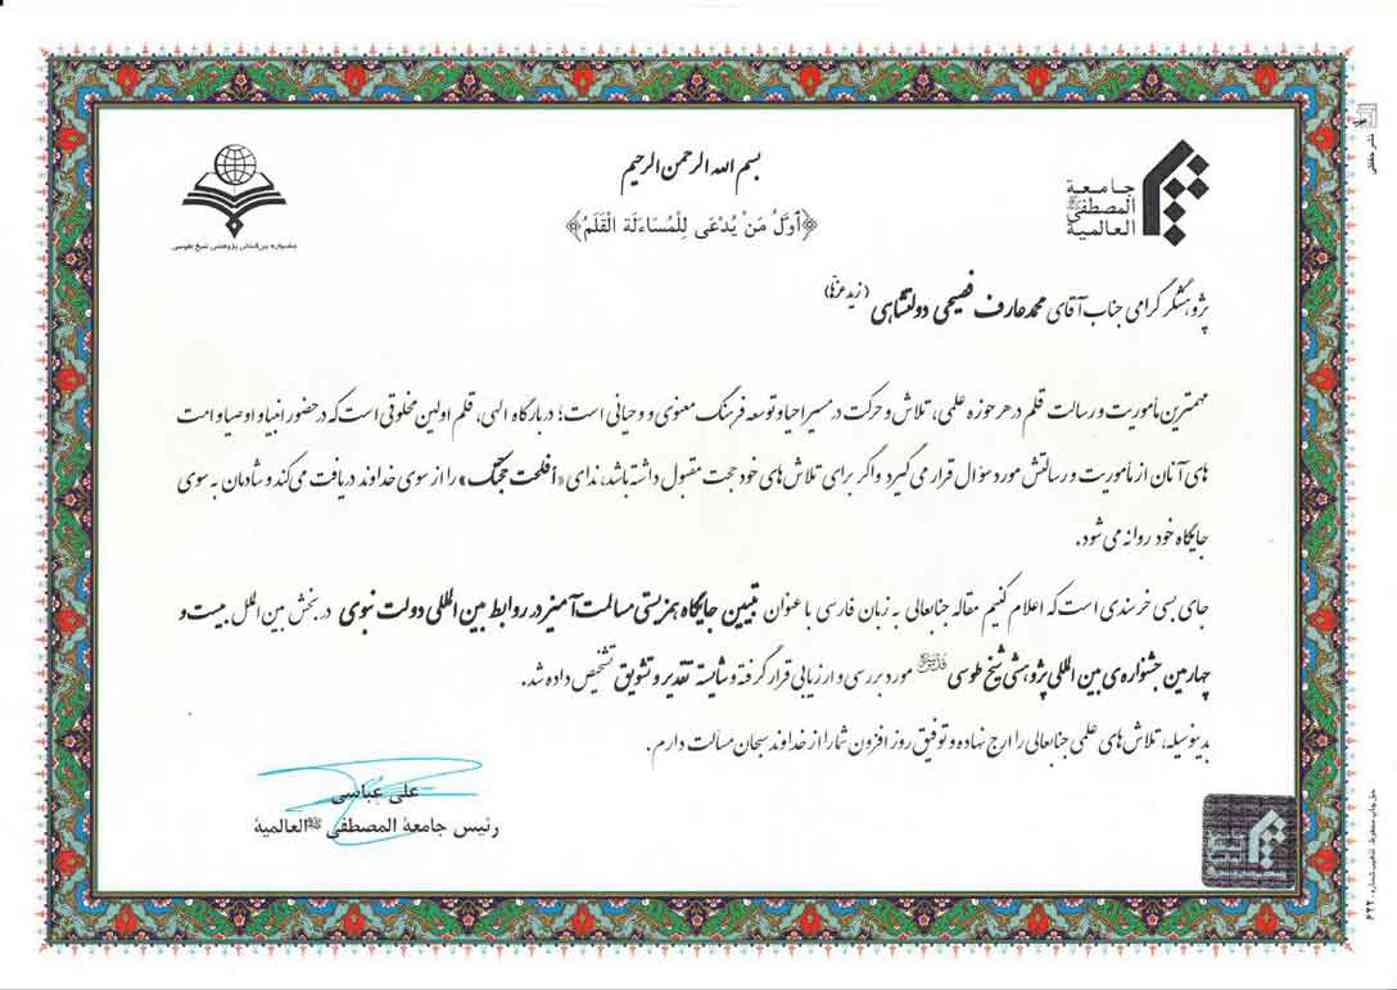 بسم الله الرحمن الرحیم
﴿أَوَّلُ مَنْ يُدْعَى لِلْمُسَاءَلَة الْقَلَمُ﴾
جامعة
المصطفی
العالمیة
جشنواره بین‌المللی پژوهشی شیخ طوسی
پژوهشگر گرامی جناب آقای محمد عارف فصیحی دولتشاهی (زید عزّه)
مهمترین مأموریت و رسالت قلم در هر حوزه علمی، تلاش و حرکت در مسیر احیا و توسعه فرهنگ معنوی و وحیانی است؛ در بارگاه الهی، قلم اولین مخلوقی است که در حضور انبیا و اوصیا و امت
های آنان از مأموریت و رسالتش مورد سؤال قرار می گیرد و اگر برای تلاش های خود حجت مقبول داشته باشد، ندای «أفلحت حجتک» را از سوی خداوند دریافت می کند و شادمان به سوی
جایگاه خود روانه می شود.
جای بسی خرسندی است که اعلام کنیم مقاله جنابعالی به زبان فارسی با عنوان تبیین جایگاه همزیستی مسالمت آمیز در روابط بین المللی دولت نبوی در بخش بین الملل بیست و
چهارمین جشنواره‌ی بین المللی پژوهشی شیخ طوسی مورد بررسی و ارزیابی قرار گرفته و شایسته تقدیر و تشویق تشخیص داده شد.
بدینوسیله، تلاش های علمی جنابعالی را ارج نهاده و توفیق روز افزون شما را از خداوند سبحان مسالت دارم.
علی عباسی
رئیس جامعة المصطفی العالمیة